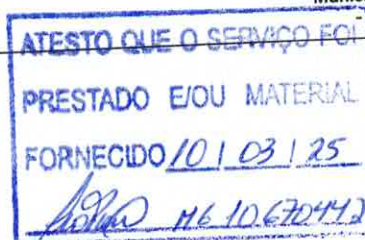 ATESTO QUE O SERVIÇO FOI
PRESTADO E/OU MATERIAL
FORNECIDO 10 / 03 / 25
MG 10.670442